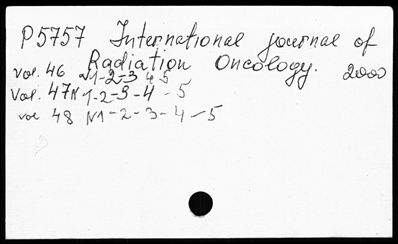 P5757 International journal of
Radiation Oncology. 2000
vol. 46 N1-2-3 4 5
Vol. 47N 1-2-3-4-5
vol 48 N1-2-3-4-5